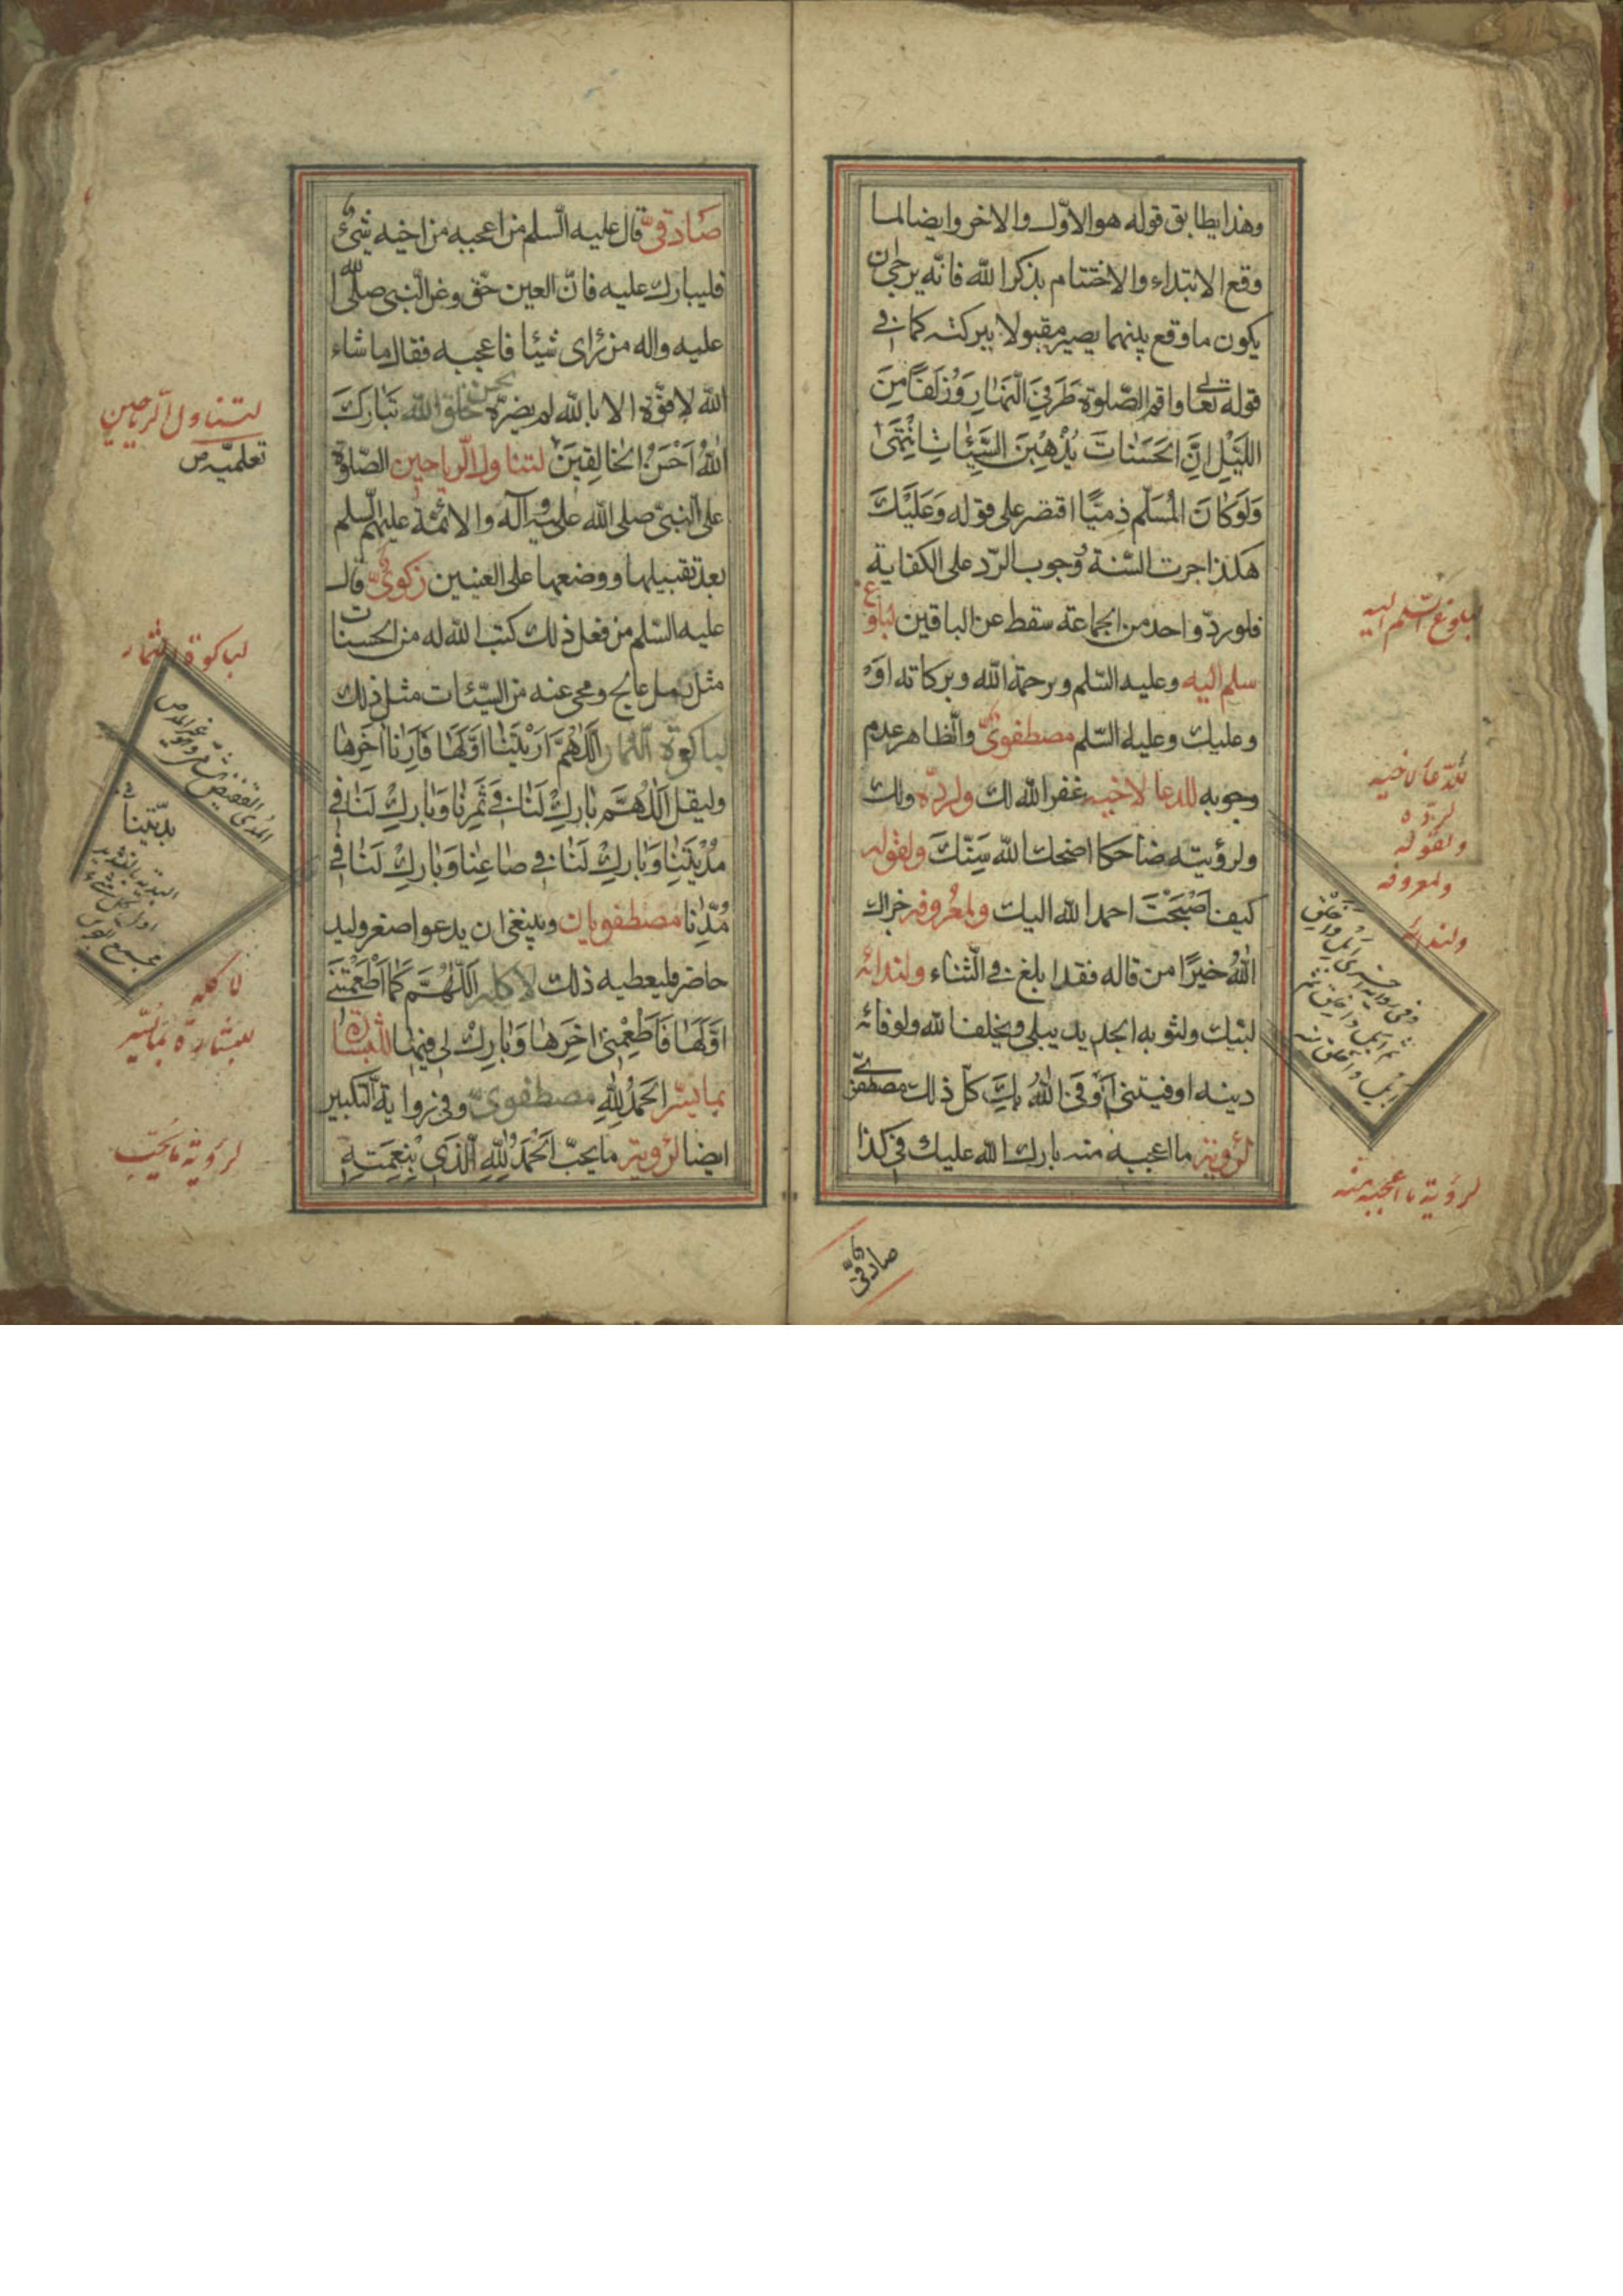 وهذا يطابق قوله هو الاوّل والاخر وايضا لما
وقع الابتداء والاختتام بذكر الله فانّه يرجى ان
يكون ما وقع بينهما يصير مقبولا ببركته كما في
قوله تعا واقم الصّلوة طَرَفَيِ النَّهٰارِ وَزُلَفًا مِنَ
اللَّيْلِ اِنَّ الحَسَنٰاتَ يُذْهِبْنَ السَّيِّئٰاتِ انْتَهَىٰ
وَلَوكٰانَ المُسَلّم ذِمّيًّا اقتصر على قوله وَعَلَيْكَ
هكذا جرت السّنة وُجوب الرّد على الكفاية
فلو ردّ واحد من الجماعة سقط عن الباقين لبلوغ
سلم اليه وعليه السّلم ورحمة الله وبركاته اوْ
وعليك وعليه السّلم مصطفويّ والظاهر عدم
وجوبه للدعا لاخيه غفر الله لك ولردّه ولك
ولرؤيته ضاحكا اضحك الله سِنّكَ ولقوله
كيف اَصْبَحْتَ احمد الله اليك ولمعروفه جزاك
اللهُ خيرًا من قاله فقد ابلغ في الثّناء ولندائه
لبّيك ولثوبه الجديد يبلي ويخلف الله ولوفائه
دينه اوفيتني اَوْفَى اللهُ بِكَ كلّ ذلك مصطفى
لرؤيته ما اعجبه منه بارك الله عليك في كذا
لبلوغ السّلم اليه
للدّعا لاخيه
لردّه
ولقوله
ولمعروفه
ولندائه
لرؤية ما اعجبه منه
صادقىّ
صَادقيّ قال عليه السّلم من اعجبه من اخيه شئ
فليبارك عليه فانّ العين حقّ وعن النّبي صلّى الله
عليه واله من رٰاى شيئا فاعجبه فقال ما شاء
الله لا قوّة الا بالله لم يضرّه لحسن خلق الله تَبٰارَكَ
اللهُ اَحْسَنُ الخٰالِقينَ لتناول الرّياحين الصّلوة
على النّبيّ صلى الله عليه وآله والائمّة عليهم السلم
بعد تقبيلها ووضعها على العينين زكويّ قال
عليه السّلم من فعل ذلك كتب الله له من الحسنات
مثل رمل عالج ومحى عنه من السّيّئات مثل ذلك
لباكورة الثمار اَللّهُمَّ اَرَيْتَنٰا اَوَّلَهٰا فَاَرِنٰا اٰخِرَهٰا
وليقل اَللّهُمَّ بٰارِكْ لَنٰا في ثَمَرِنٰا وَبٰارِكْ لَنٰا في
مَدْيَنَتِنٰا وَبٰارِكْ لَنٰا في صٰاعِنٰا وَبٰارِكْ لَنٰا في
مُدِّنٰا مصطفويان وينبغي ان يدعو اصغر وليد
حاضر فليعطيه ذلك لاكله اَللّهُمَّ كَمٰا اَطْعَمْتَنٖى
اَوَّلَهٰا فَاَطْعِمْنٖى اٰخِرَهٰا وَبٰارِكْ لي فيهٰا للبشارة
بما يسّر اَلحَمْدُ لِلّهِ مصطفويّ وفي رواية التكبير
ايضا لرؤية ما يحبّ اَلحَمْدُ لِلّهِ الَّذٖي بِنِعْمَتِهٖ
لتناول الرّياحين
لباكورة الثمار
بدّيتنا
لاكله
للبشارة بما يسّر
لرؤية ما يحبّ